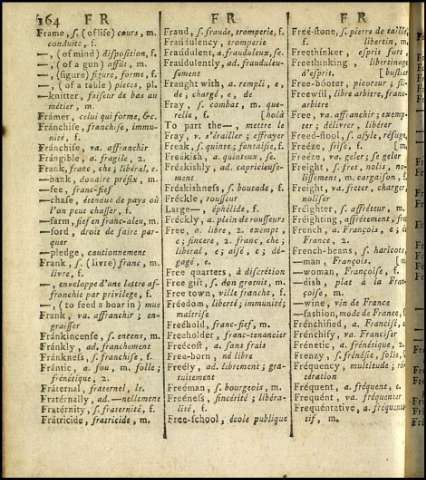 164 F R F R F R
Frame, s. (of life) cours, m.
conduite, f.
—, (of mind) disposition, f.
—, (of a gun) affût, m.
—, (figure) figure, forme, f.
—, (of a table) pieces, pl.
—knitter, faiseur de bas au
métier, m.
Frámer, celui qui forme, &c.
Fránchise, franchise, immu-
nité, f.
Fránchise, va. affranchir
Frángible, a. fragile, 2.
Frank, franc, che; libéral, e.
—bank, douaire préfix, m.
—fee, franc-fief
—chase, étendue de pays où
l'on peut chasser, f.
—farm, fief en franc-aleu, m.
—ford, droit de faire par-
quer
—pledge, cautionnement
Frank, s. (livre) franc, m.
livre, f.
—, enveloppe d'une lettre af-
franchie par privilege, f.
—, (to feed a boar in) mue
Frank, va. affranchir; en-
graisser
Fránkincense, s. encens, m.
Fránkly, ad. franchement
Fránkness, franchise, f.
Frántic, a. fou, m. folle;
frénétique, 2.
Fratérnal, fraternel, le.
Fratérnally, ad. —nellement
Fratérnity, s. fraternité, f.
Frátricide, fratricide, m.
Fraud, s. fraude, tromperie, f.
Fraúdulency, tromperie
Fraúdulent, a. frauduleux, se.
Fraúdulently, ad. frauduleu-
sement
Fraught with, a. rempli, e,
de; chargé, e, de
Fray, s. combat, m. que-
relle, f. [hola
To part the —, mettre le
Fray, v. s'érailler; effrayer
Freak, s. quinte; fantaisie, f.
Freákish, a. quinteux, se.
Freákishly, ad. capricieuse-
ment
Freákishness, s. boutade, f.
Fréckle, rousseur
Large—, éphélide, f.
Fréckly, a. plein de rousseurs
Free, a. libre, 2. exempt,
e; sincere, 2. franc, che;
libéral, e; aisé, e; dé-
gagé, e.
Free quarters, à discrétion
Free gift, s. don gratuit, m.
Free town, ville franche, f.
Fréedom, liberté; immunité;
maîtrise
Freehóld, franc-fief, m.
Freeholder, franc-tenancier
Freécost, a. sans frais
Free-born, né libre
Freély, ad. librement; gra-
tuitement
Freéman, s. bourgeois, m.
Freéness, sincérité; libéra-
lité, f.
Free-school, école publique
Freé-stone, s. pierre de taille,
f. libertin, m.
Freethinker, esprit fort;
Freethinking, libertinage
d'esprit. [bustier
Free-booter, picoreur; fli-
Freewill, libre arbitre, franc-
arbitre
Free, va. affranchir; exemp-
ter; délivrer, libérer
Freed-stool, s. asyle, réfuge,
Freéze, frise, f. m.
Freéze, va. geler; se geler
Freight, s. fret, nolis, no-
lissement, m. cargaison, f.
Freight, va. fréter, charger,
noliser
Freíghter, s. affréteur, m.
Freíghting, affrétement, fret
French, a. François, e; de
France, 2.
French-beans, s. haricots
—man, François, m.
—woman, Françoise, f.
—dish, plat à la Fran-
çoise, m.
—wine, vin de France
—fashion, mode de France, f.
Frénchified, a. Francisé,
Frénchify, va. Franciser
Frénetic, a. frénétique, 2.
Frenzy, s. frénésie, folie, f.
Fréquency, multitude; ré-
itération
Fréquent, a. fréquent, e.
Fréquent, va. fréquenter
Frequéntative, a. fréquenta-